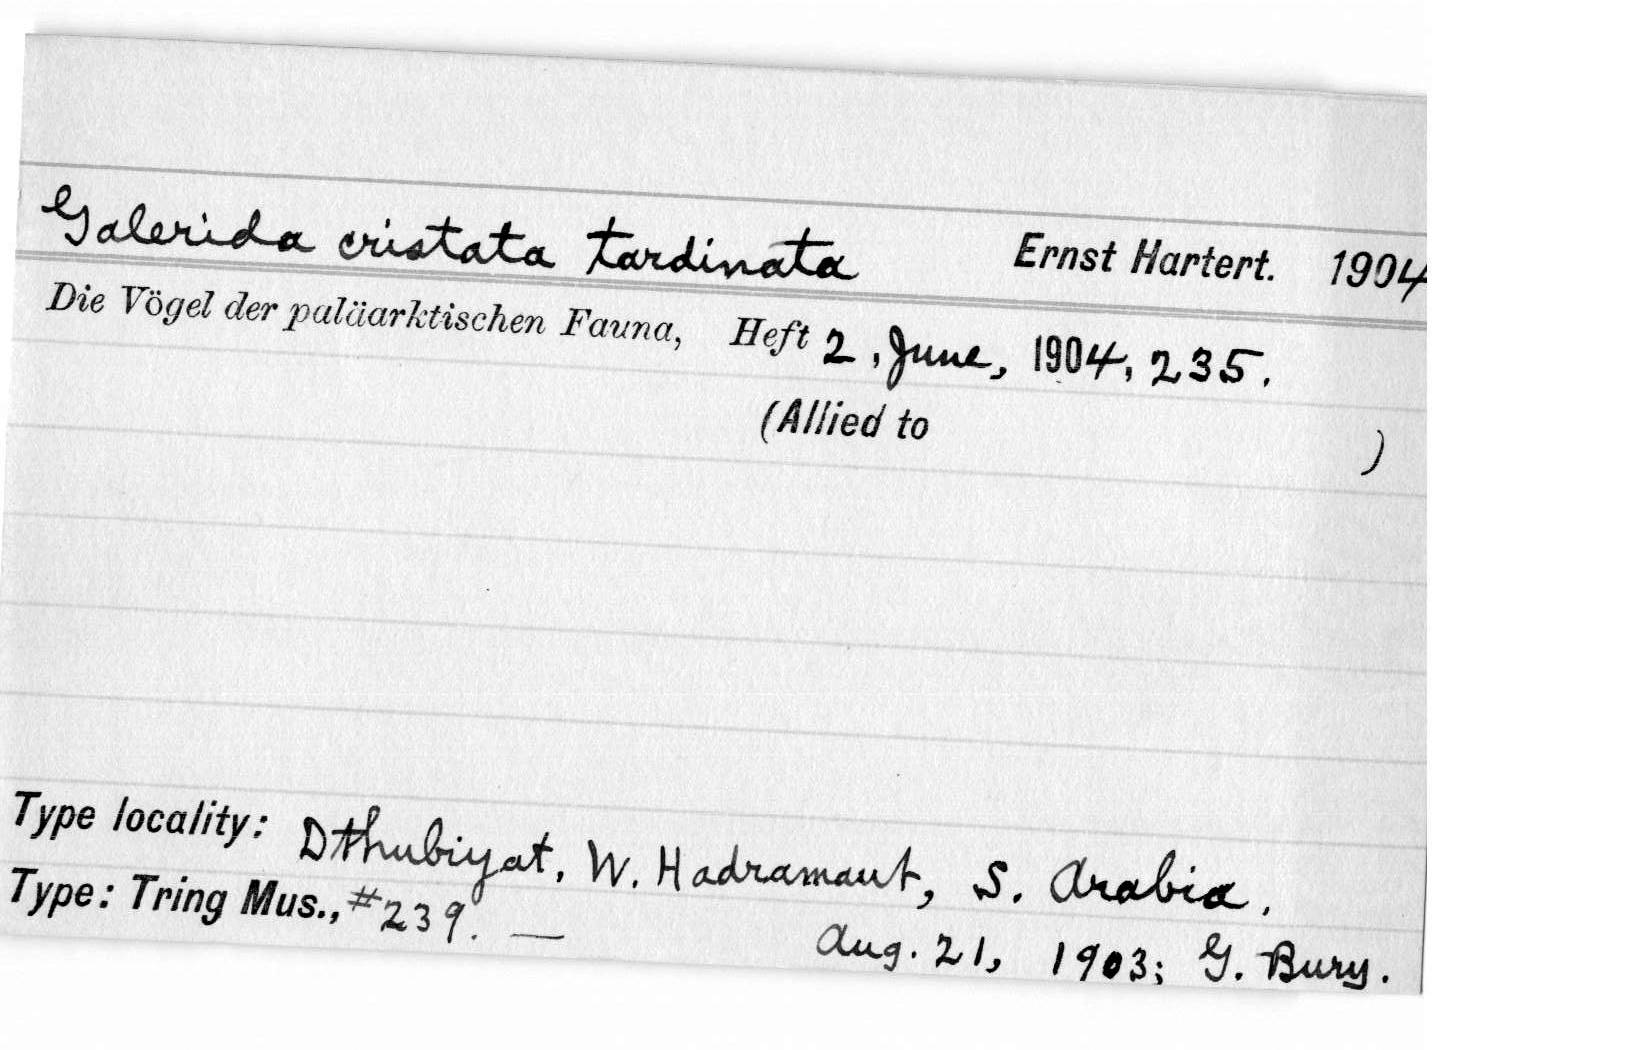 Galerida cristata tardinata Ernst Hartert. 1904
Die Vögel der paläarktischen Fauna, Heft 2, June, 1904, 235.
(Allied to )
Type locality: Dthubiyat, W. Hadramaut, S. Arabia.
Type: Tring Mus., #239. — Aug. 21, 1903; G. Bury.